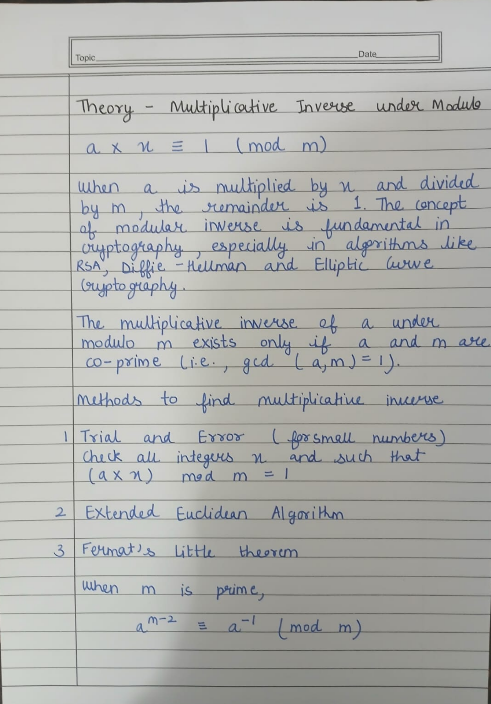 Topic Date
Theory - Multiplicative Inverse under Modulo
a x x ≡ 1 (mod m)
When a is multiplied by x and divided
by m, the remainder is 1. The concept
of modular inverse is fundamental in
cryptography, especially in algorithms like
RSA, Diffie-Hellman and Elliptic Curve
Cryptography.
The multiplicative inverse of a under
modulo m exists only if a and m are
co-prime (i.e., gcd (a,m) = 1).
Methods to find multiplicative inverse
1 Trial and Error (for small numbers)
Check all integers x and such that
(a x x) mod m = 1
2 Extended Euclidean Algorithm
3 Fermat's little theorem
When m is prime,
a^m-2 ≡ a^-1 (mod m)